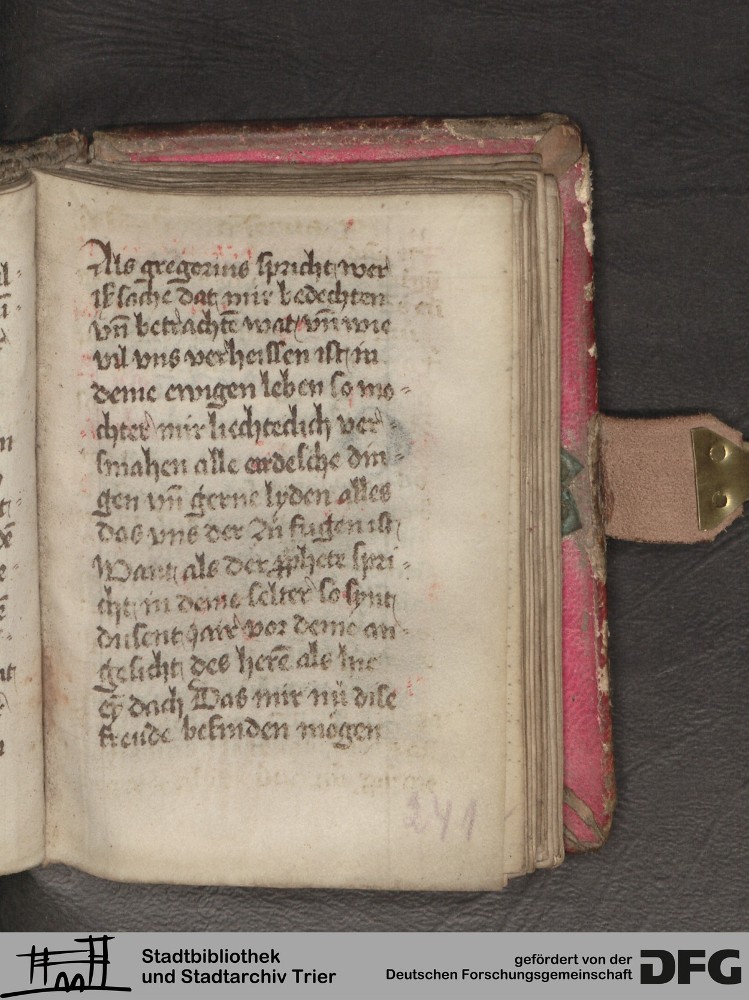 Als gregorius spricht wer
sache dat mir bedechten
vn̄ betrachtē wat vn̄ wie
vil vns verheissen ist in
deme ewigen leben so mo-
chter mir liechteclich ver-
smahen alle erdesche din-
gen vn̄ gerne lyden alles
das vns der zu fugen ist
Want als der ꝓphete spri-
cht in deme selter so synt
dusent jair vor deme an-
gesicht des herē als hie
eyn dach Das mir nu dise
freude befinden mogen
241
Stadtbibliothek
und Stadtarchiv Trier
gefördert von der
Deutschen Forschungsgemeinschaft
DFG